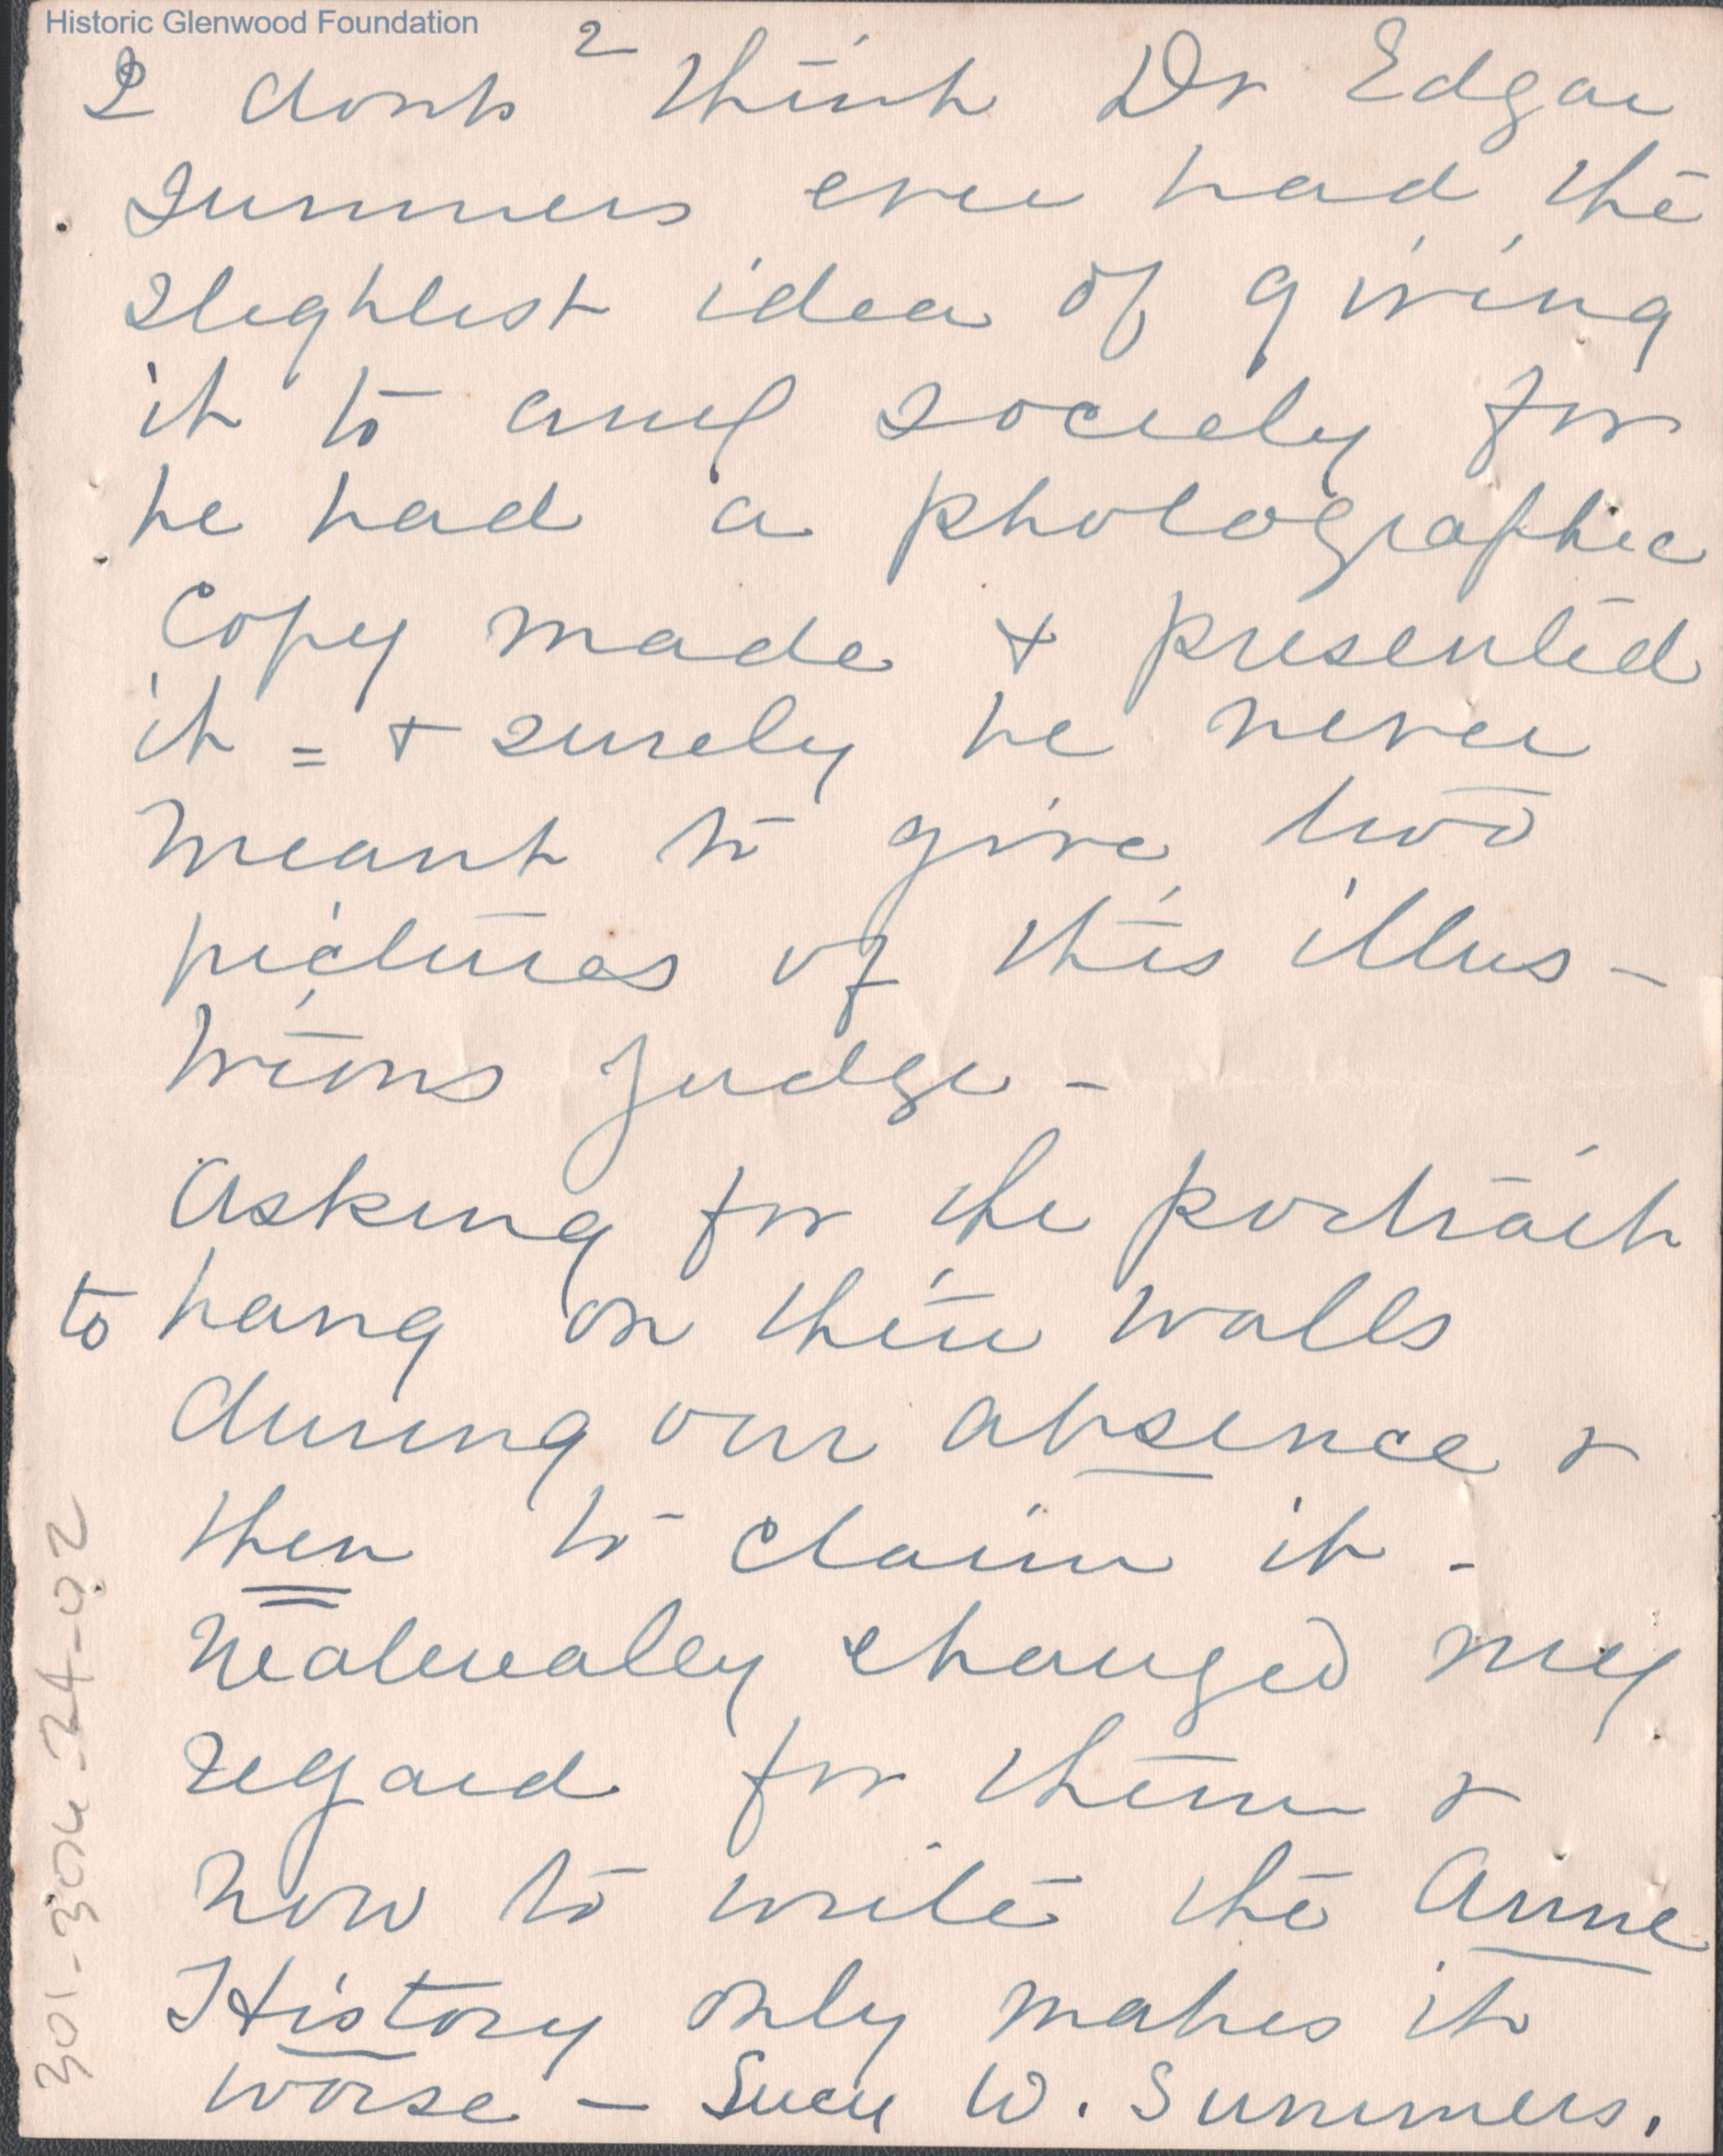 Historic Glenwood Foundation
2
I dont think Dr Edgar
Summers ever had the
slightest idea of giving
it to any society for
he had a photographic
Copy made + presented
it = + surely he never
meant to give two
pictures of this illus-
trious Judge -
Asking for the portrait
to hang on their walls
during our absence &
then to claim it -
Naturally changed my
regard for them &
now to write the Anne
History only makes it
worse - Lucy W. Summers.